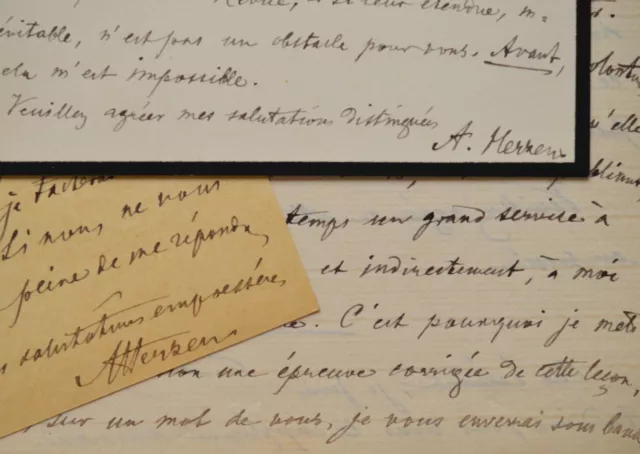 Revue, si leur étendue, m-
éritable, n'est pas un obstacle pour vous. Avant,
cela m'est impossible.
Veuillez agréer mes salutations distinguées
A. Herzen
je
si nous ne vous
peine de me répondre,
salutations empressées
AHerzen
qu'elle
temps un grand service à
et indirectement, à moi
C'est pourquoi je mets
une épreuve corrigée de cette leçon,
sur un mot de vous, je vous enverrai sous bande